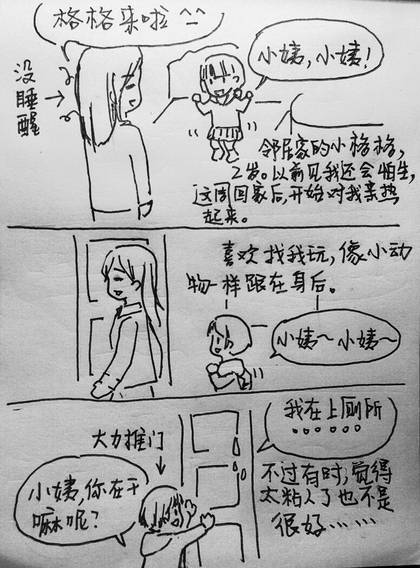 格格来啦^^
没睡醒
小姨,小姨!
邻居家的小格格,
2岁。以前见我还会怕生,
这周回家后,开始对我亲热
起来。
喜欢找我玩,像小动
物一样跟在身后。
小姨~小姨~
我在上厕所
。。。。。。
大力推门
小姨,你在干
嘛呢?
不过有时,觉得
太粘人了也不是
很好……